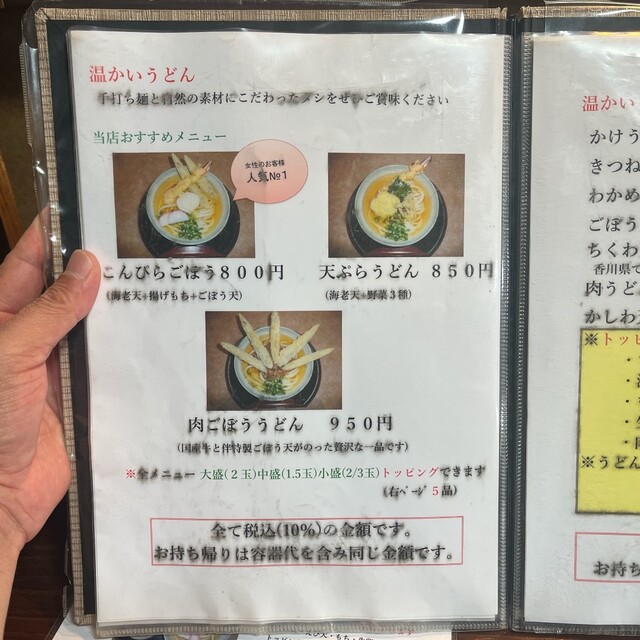 温かいうどん
手打ち麺と自然の素材にこだわったダシをぜひご賞味ください
当店おすすめメニュー
女性のお客様
人気№1
こんぴらごぼう８００円
(海老天+揚げもち+ごぼう天)
天ぷらうどん ８５０円
(海老天+野菜３種)
肉ごぼううどん ９５０円
(国産牛と伴特製ごぼう天がのった贅沢な一品です)
※全メニュー 大盛(２玉)中盛(1.5玉)小盛(2/3玉)トッピングできます
(右ページ 5品)
全て税込(10%)の金額です。
お持ち帰りは容器代を含み同じ金額です。
温かい
かけう
きつね
わかめ
ごぼう
ちくわ
香川県で
肉うど
かしわ
※トッピ
※うどん
お持ち